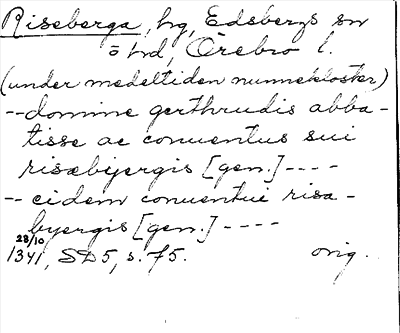 Riseberga, hg, Edsbergs sn
o hd, Örebro l.
(under medeltiden nunnekloster)
-- domine gerthrudis abba-
tisse ac conuentus sui
risæbyergis [gen.] ----
-- eidem conuentui risa-
byergis [gen.] ----
28/10
1341, SD5, s. 75. orig.